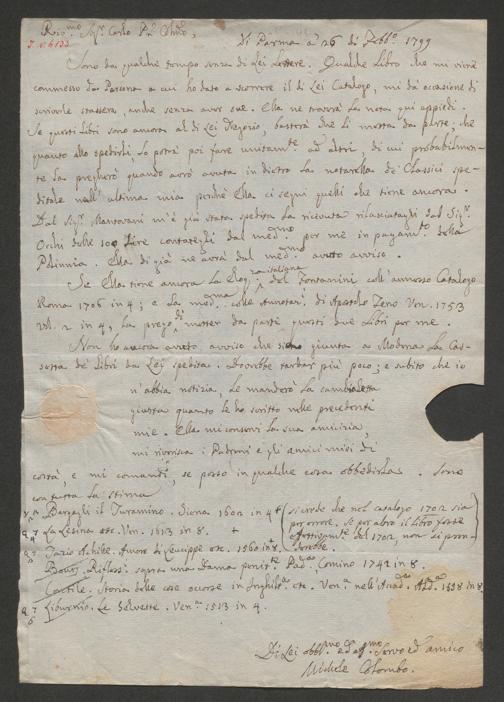 Riv.mo Sig.r Carlo P.ne Amo,
Di Parma a' 26 di Febb.o 1799
Sono da qualche tempo senza di Lei Lettere. Qualche Libro che mi viene
commesso da Persona a cui ho dato a scorrere il di Lei Catalogo, mi dà occasione di
scriverle stassera, anche senza aver sue. Ella ne troverà la nota qui appiedi.
Se questi Libri sono ancora al di Lei Negozio, basterà che Li metta da parte; che
quanto allo spedirli, Lo potrà poi fare unitam.te ad altri, di cui probabilmen-
te La pregherò quando avrò avuta in dietro La notarella de' Classici spe-
ditale nell' ultima mia perchè Ella ci segni quelli che tiene ancora.
Dal Sig.r Mantovani m'è già stata spedita La ricevuta rilasciatagli dal Sig.r
Occhi delle 100 Lire contategli dal med.mo per me in pagam.to della
Polinnia. Ella di già ne avrà dal med.mo avuto avviso.
Se Ella tiene ancora La Eloq.za italiana del Fontanini coll' annesso Catalogo
Roma 1706 in 4; e La med.ma colle Annotaz.i di Apostolo Zeno Ven. 1753
vol. 2 in 4, La prego di metter da parte questi due Libri per me.
Non ho ancora avuto avviso che sia giunta a Modena La Cas-
setta de' Libri da Lei spedita. Dovrebbe tardar più poco; e subito che io
n'abbia notizia, Le manderò La cambialetta
giusta quanto Le ho scritto nelle precedenti
mie. Ella mi conservi La sua amicizia,
mi riverisca i Padroni e gli amici miei di
costà, e mi comandi, se posso in qualche cosa obbedirla. Sono
con tutta La stima
Bargagli il Turamino. Siena 1602 in 4 + si crede che nel catalogo 1702 sia
per errore. Se per altro il Libro fosse
effettivam.te del 1702, non si pren-
derebbe.
La Lesina etc. Ven. 1613 in 8. +
Tazio Achille. Amore di Leucippe etc. 1560 in 8.
Rifless. sopra una Dama penit.te Pad. Comino 1742 in 8.
Storia delle cose occorse in Inghilt.a etc. Ven.a nell' Accad. 1558 in 8.
Liburnio. Le Selvette. Ven.a 1513 in 4.
Di Lei obbl.mo ed aff.mo Servo ed amico
Michele Colombo.